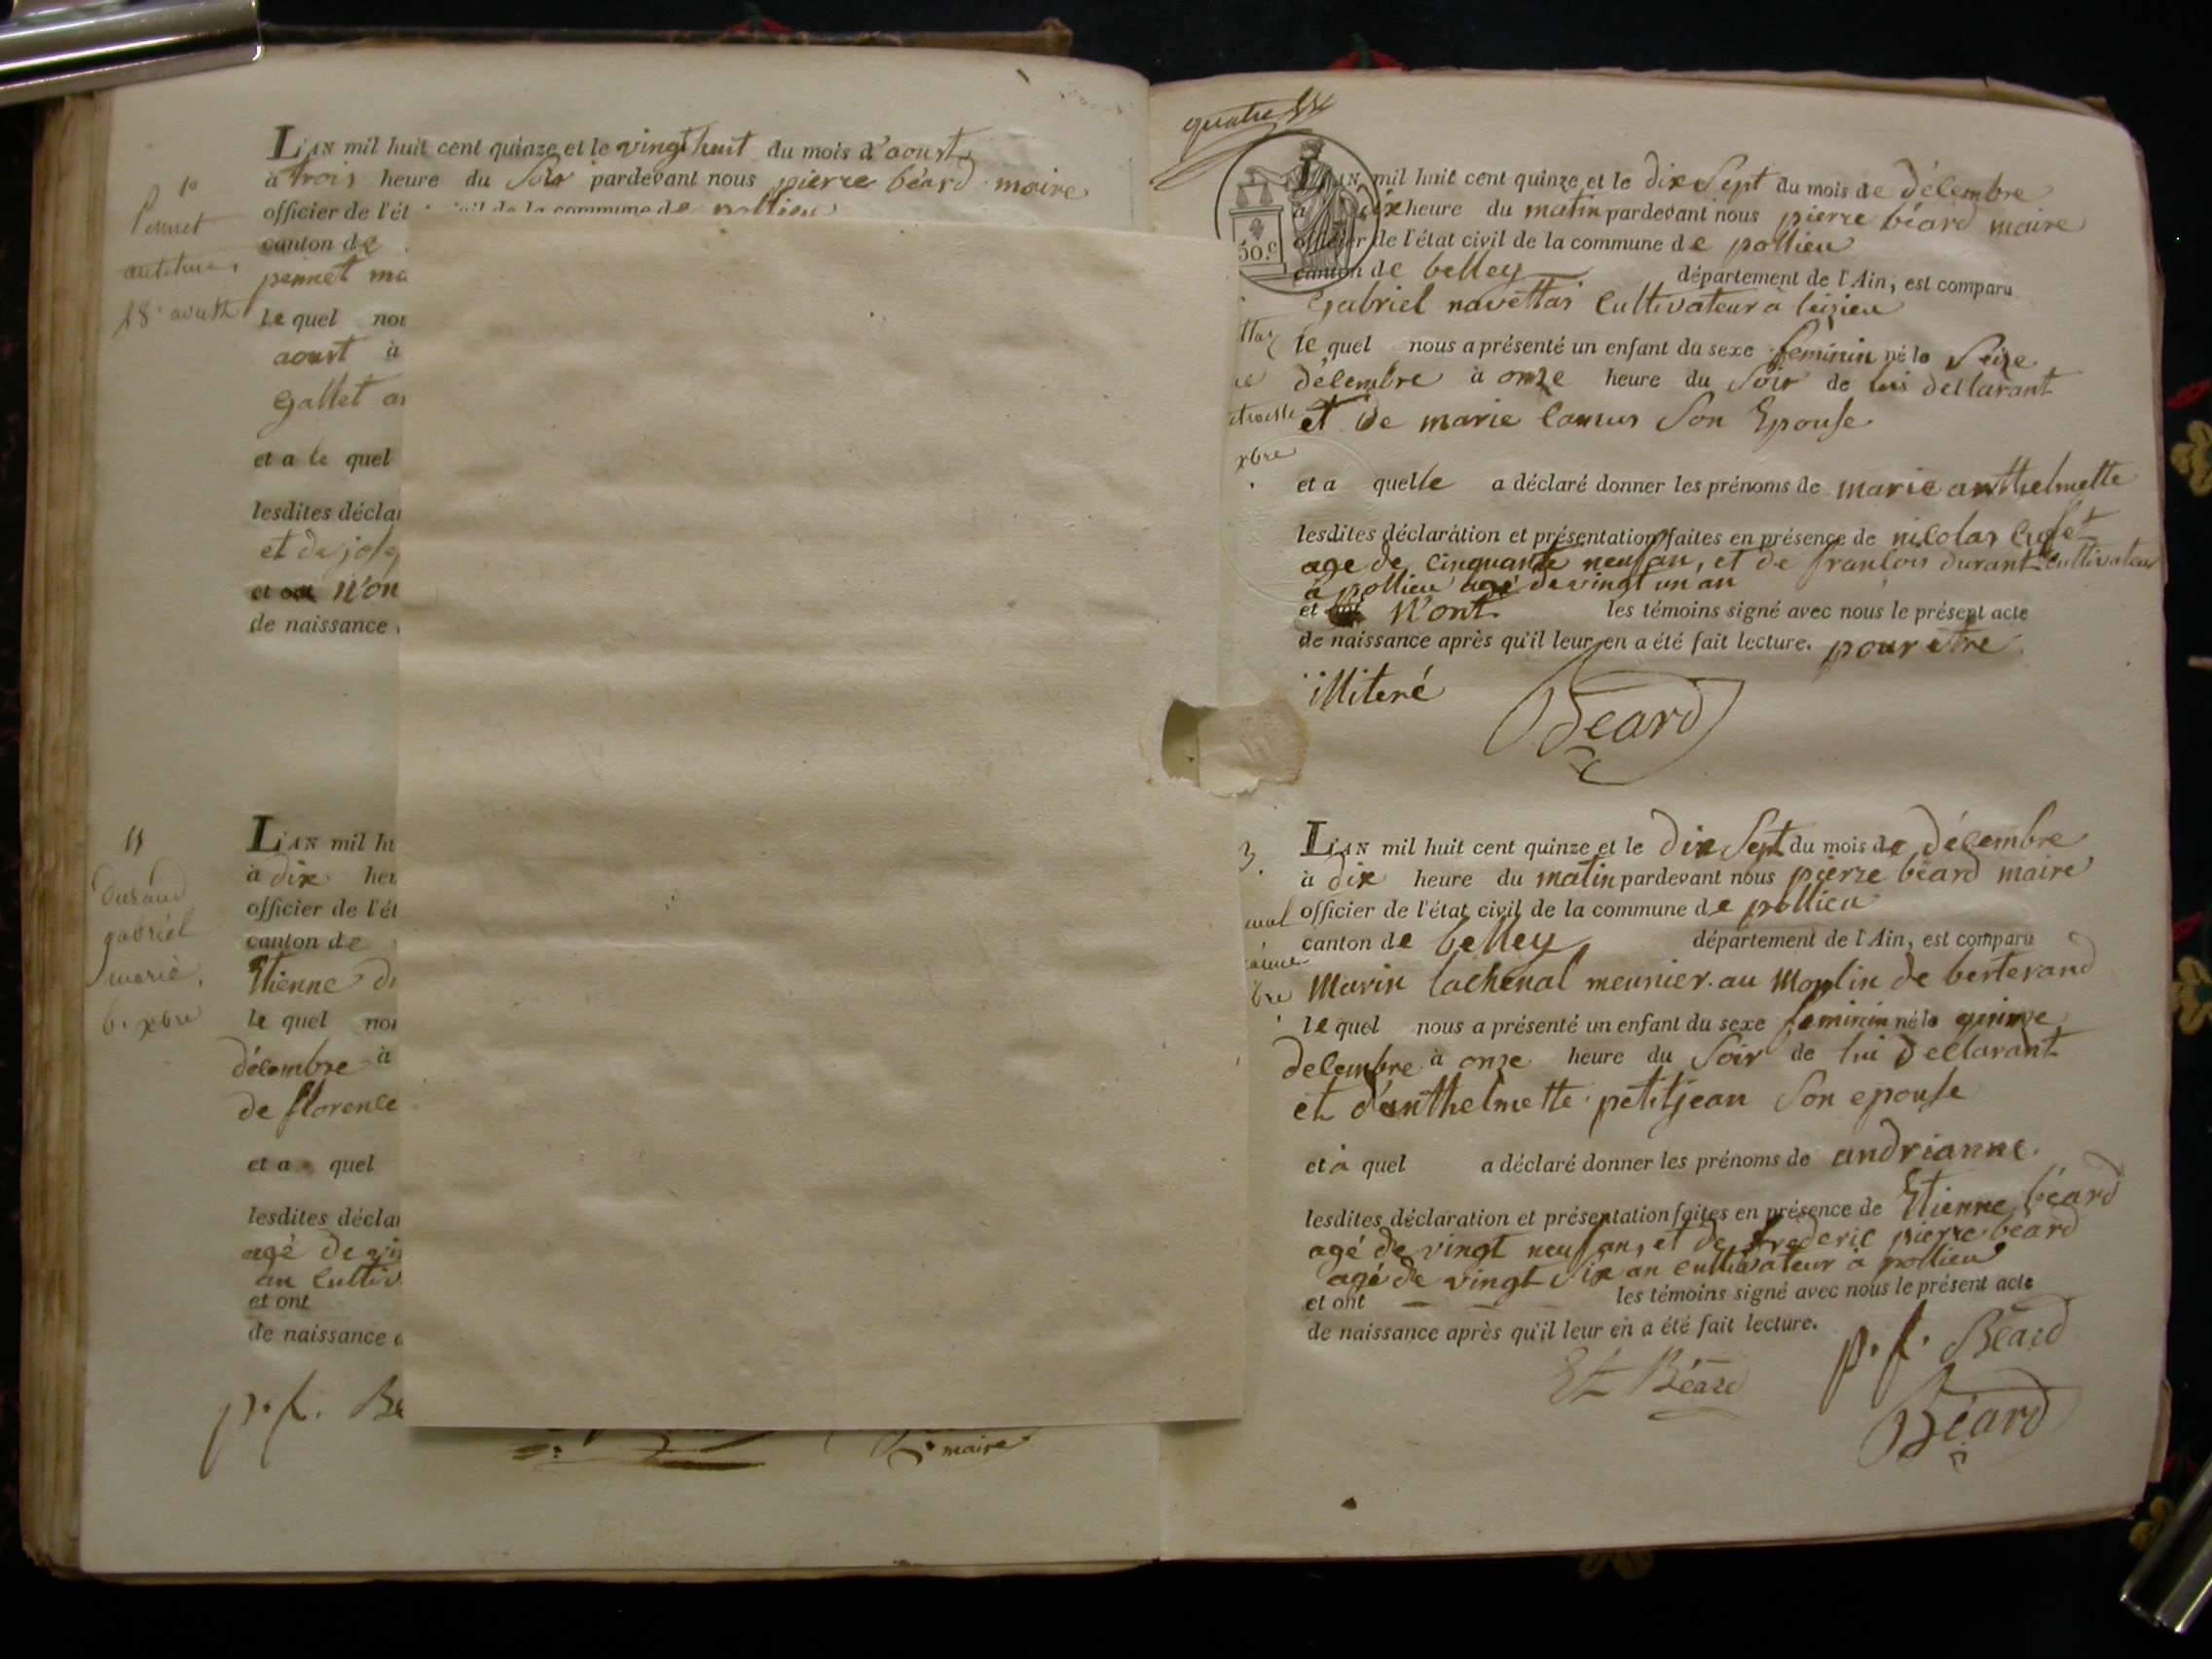 L'AN mil huit cent quinze et le vingt huit du mois d'aoust
à trois heure du soir pardevant nous pierre béard maire
officier de l'ét
canton de
pennet ma
le quel nou
aoust à
gallet
et a le quel
lesdites déclar
et de jose
et n'on
de naissance
10
pennet
18 aoust
L'AN mil hu
à dix heu
officier de l'ét
canton de
Etienne du
le quel nou
décembre à
de florence
et a quel
lesdites déclar
agé de
an cultiv
et ont
de naissance a
p. f. Be
maire
11
durand
gabriel
marie
6. xbre
quatre
50.c
L'AN mil huit cent quinze et le dix sept du mois de décembre
à dix heure du matin pardevant nous pierre béard maire
officier de l'état civil de la commune de pollieu
canton de belley département de l'Ain, est comparu
Gabriel navettas cultivateur à
le quel nous a présenté un enfant du sexe feminin né le seize
décembre à onze heure du soir de lui déclarant
et de marie camus son Epouse
et a quelle a déclaré donner les prénoms de marie anthelmette
lesdites déclaration et présentation faites en présence de nicolas
age de cinquante neuf an, et de françois durant cultivateur
à pollieu agé de vingt un an
et n'ont les témoins signé avec nous le présent acte
de naissance après qu'il leur en a été fait lecture. pour etre
illiteré
Béard
xbre
L'AN mil huit cent quinze et le dix sept du mois de décembre
à dix heure du matin pardevant nous pierre béard maire
officier de l'état civil de la commune de pollieu
canton de belley département de l'Ain, est comparu
Marin lachenal meunier au moulin de berterand
le quel nous a présenté un enfant du sexe feminin né le quinze
decembre à onze heure du soir de lui declarant
et d'anthelmette petitjean son epouse
et à quel a déclaré donner les prénoms de andrianne.
lesdites déclaration et présentation faites en présence de Etienne béard
agé de vingt neuf an, et de frederic pierre béard
agé de vingt six an cultivateur à pollieu
et ont les témoins signé avec nous le présent acte
de naissance après qu'il leur en a été fait lecture.
p. f. Béard
Et Béard
Béard